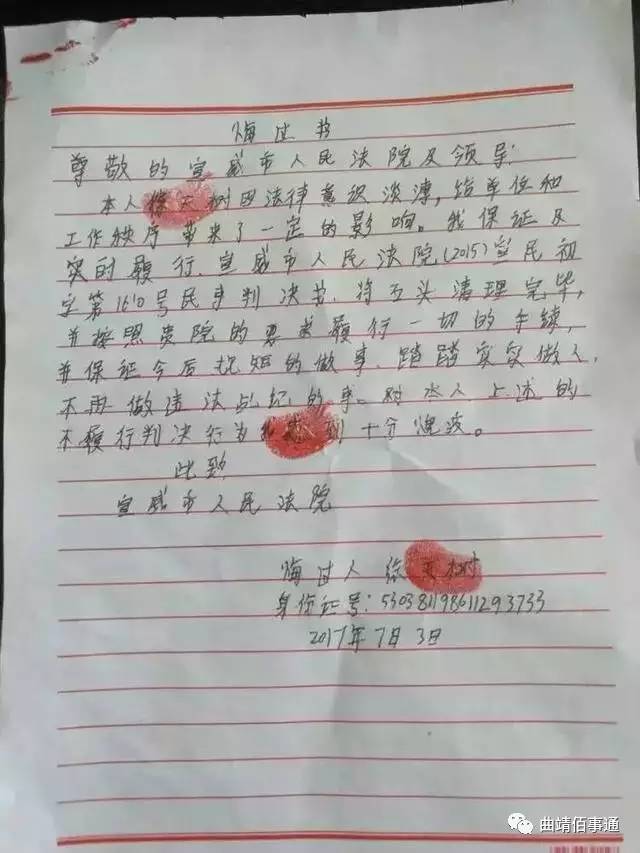 悔过书
尊敬的宣威市人民法院及领导:
本人徐天树因法律意识淡薄,给单位和
工作秩序带来了一定的影响。我保证及
实的履行,宣威市人民法院(2015)宣民初
字第1610号民事判决书,将石头清理完毕,
并按照贵院的要求履行一切的手续,
并保证今后规矩的做事,踏踏实实做人,
不再做违法乱纪的事。对本人上述的
不履行判决行为我感到十分愧疚。
此致
宣威市人民法院
悔过人 徐天树
身份证号:530381198611293733
2017年7月3日
曲靖佰事通